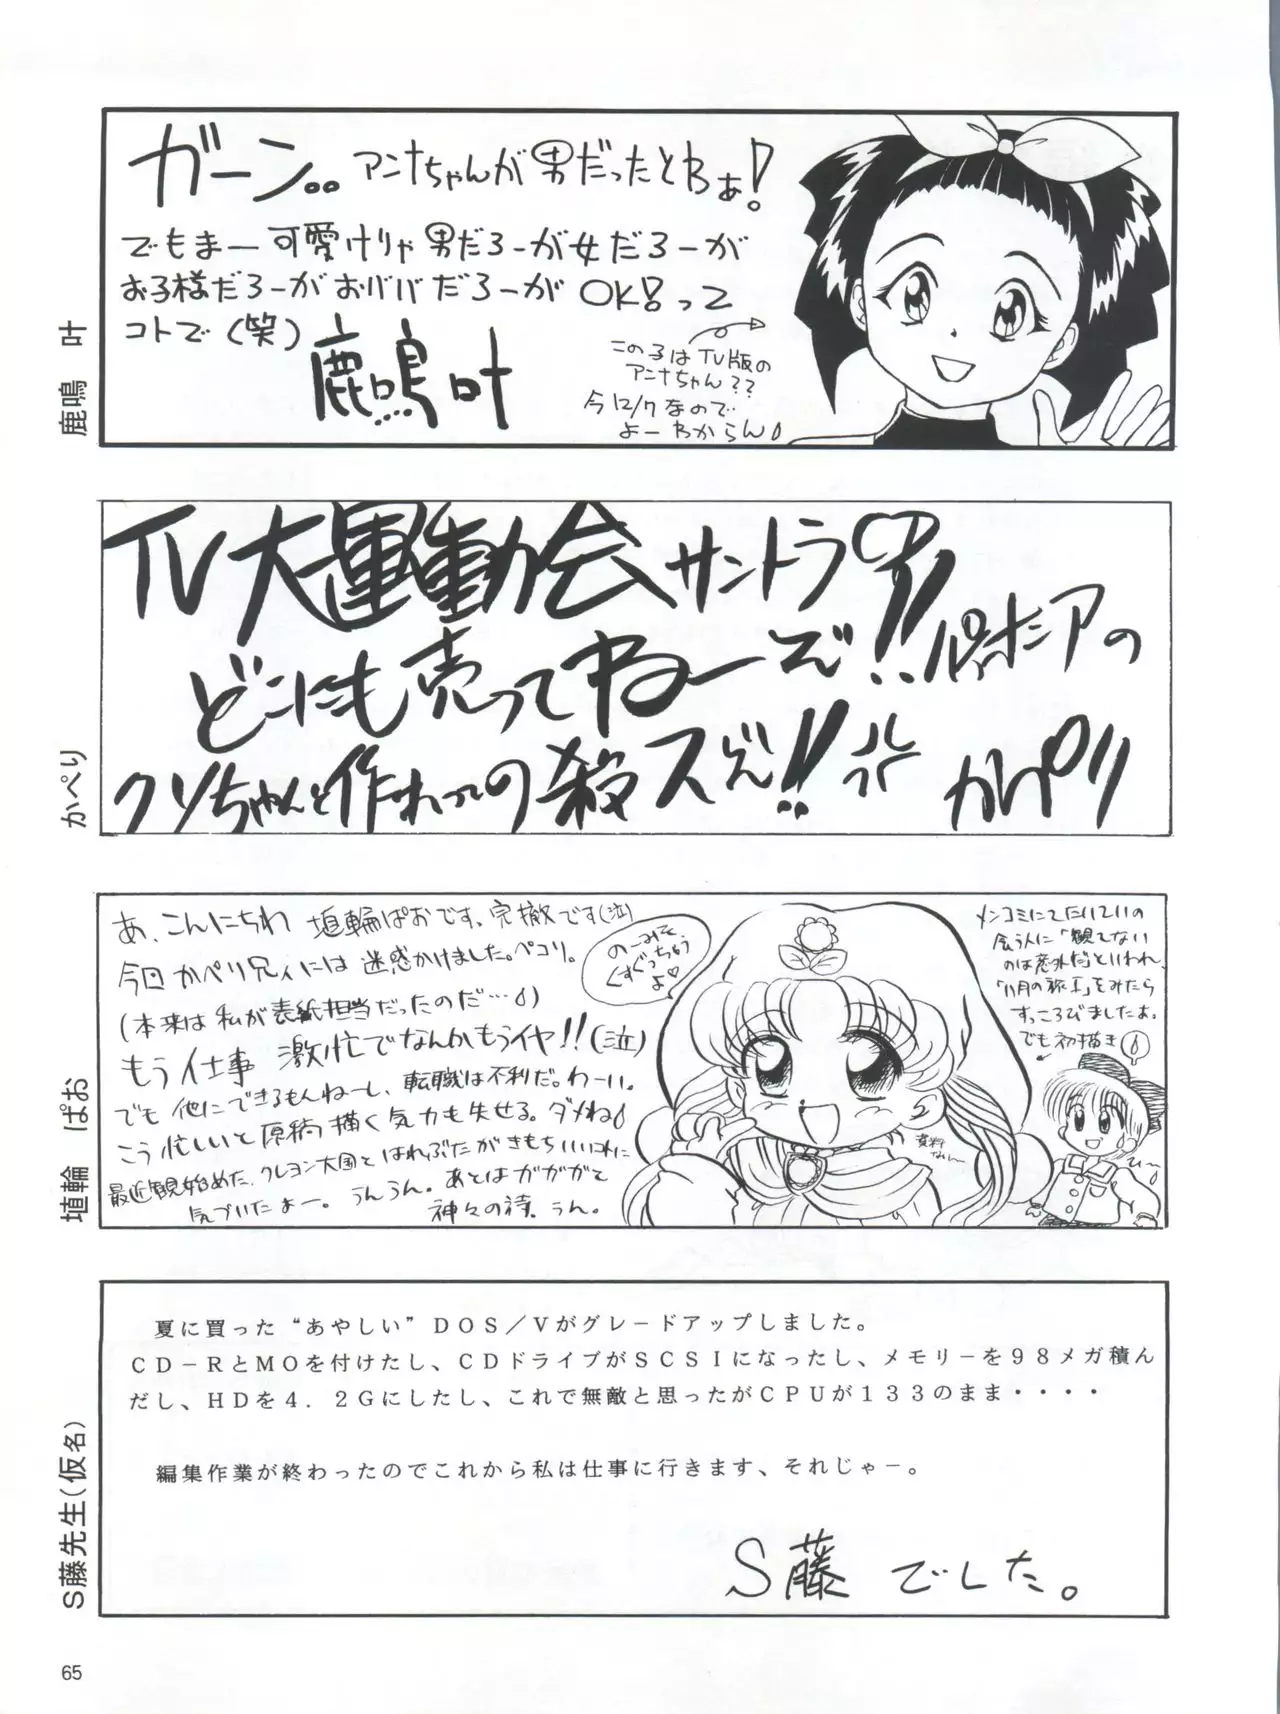 ガーン・・ アンナちゃんが男だったとわぁ!
でもまー可愛けりゃ男だろーが女だろーが
お子様だろーがおババだろーがOK!って
コトで(笑)
鹿鳴叶
この子はTV版の
アンナちゃん??
今12/7なので
よーわからん
鹿鳴 叶
TV大運動会サントラ
どこにも売ってねーぞ!!
パイオニアの
クソちゃんと作れっつの殺スぞ!!
かぺり
かぺり
あ、こんにちわ 埴輪ぱおです、完徹です(泣)
今回かペリ兄ィには迷惑かけました。ペコリ。
(本来は私が表紙担当だったのだ…)
もう仕事 激忙でなんかもうイヤ!!(泣)
でも他にできるもんねーし、転職は不利だ。わーい。
こう忙しいと原稿描く気力も失せる。ダメね
最近観始めた、クレヨン大国とはれぶたがきもちいいコトに
気づいたよー。うんうん。あとはガガガと
神々の詩。うん。
のーみそ、
くすぐっちゃう
よ♡
資料
なぃ〜
メンコミにてたいていの
会う人に「観てない
のは意外だ」といわれ、
「11月の旅王」をみたら
すっころびましたよ。
でも初描き
埴輪 ぱお
夏に買った“あやしい”DOS/Vがグレードアップしました。
CD-RとMOを付けたし、CDドライブがSCSIになったし、メモリーを98メガ積ん
だし、HDを4．2Gにしたし、これで無敵と思ったがCPUが133のまま・・・・
編集作業が終わったのでこれから私は仕事に行きます、それじゃー。
S藤 でした。
S藤先生(仮名)
65